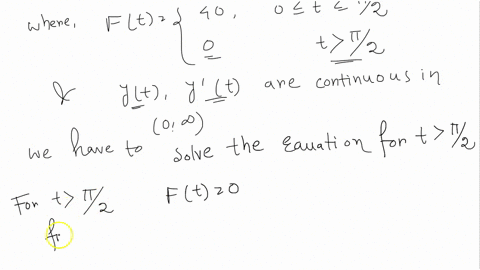 where, F(t) = { 40, 0 ≤ t ≤ π/2
0 t > π/2
& y(t), y'(t) are continuous in
(0, ∞)
we have to solve the Equation for t > π/2
For t > π/2 F(t) = 0